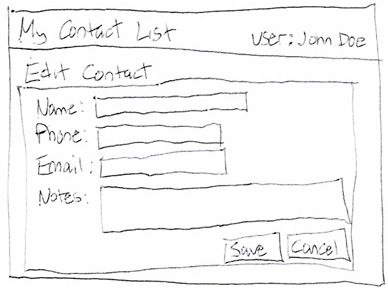 My Contact List
User: John Doe
Edit Contact
Name:
Phone:
Email:
Notes:
Save Cancel